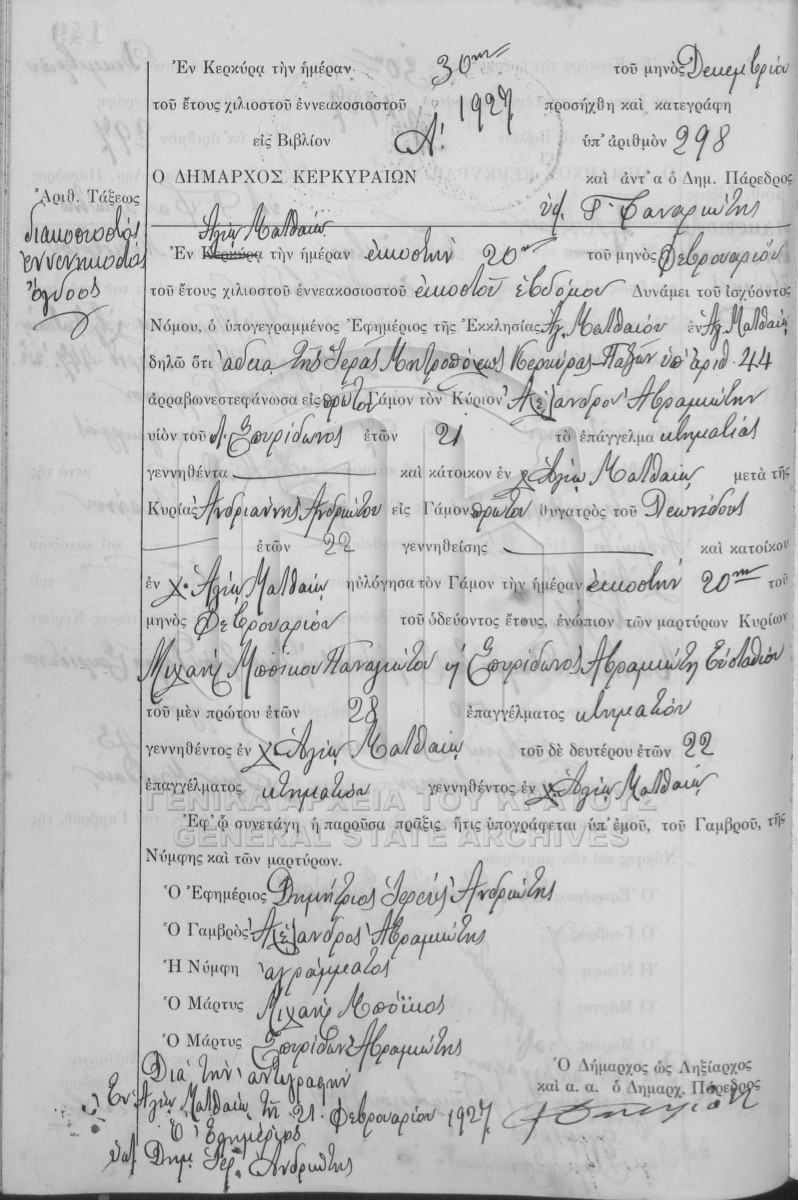 Ἐν Κερκύρᾳ τὴν ἡμέραν 30ην τοῦ μηνὸς Δεκεμβρίου
τοῦ ἔτους χιλιοστοῦ ἐννεακοσιοστοῦ 1927 προσήχθη καὶ κατεγράφη
εἰς Βιβλίον Α! ὑπ' ἀριθμὸν 298
Ο ΔΗΜΑΡΧΟΣ ΚΕΡΚΥΡΑΙΩΝ καὶ ἀντ' α ὁ Δημ. Πάρεδρος
Ἀριθ. Τάξεως
διακοσιοστός
ἐννενηκοστός
ὄγδοος
ὑπ. Γ. Φαναριώτης
Ἁγίῳ Ματθαίῳ
Ἐν Κερκύρᾳ τὴν ἡμέραν εἰκοστήν 20ην τοῦ μηνὸς Φεβρουαρίου
τοῦ ἔτους χιλιοστοῦ ἐννεακοσιοστοῦ εἰκοστοῦ ἑβδόμου Δυνάμει τοῦ ἰσχύοντος
Νόμου, ὁ ὑπογεγραμμένος Ἐφημέριος τῆς Ἐκκλησίας Ἁγ. Ματθαίου ἐν Ἁγ. Ματθαίῳ
δηλῶ ὅτι ἀδείᾳ τῆς Ἱερᾶς Μητροπόλεως Κερκύρας-Παξῶν ὑπ' ἀριθ. 44
ἀρραβωνεστεφάνωσα εἰς πρῶτον Γάμον τὸν Κύριον Ἀλέξανδρον Ἀβραμιώτην
υἱὸν τοῦ Σπυρίδωνος ἐτῶν 21 τὸ ἐπάγγελμα κτηματίας
γεννηθέντα καὶ κάτοικον ἐν χ. Ἁγίῳ Ματθαίῳ μετὰ τῆς
Κυρίας Ἀνδριάννης Ἀνδριώτου εἰς Γάμον πρῶτον θυγατρὸς τοῦ Λεωνίδους
ἐτῶν 22 γεννηθείσης καὶ κατοίκου
ἐν χ. Ἁγίῳ Ματθαίῳ ηὐλόγησα τὸν Γάμον τὴν ἡμέραν εἰκοστήν 20ην τοῦ
μηνὸς Φεβρουαρίου τοῦ ὁδεύοντος ἔτους, ἐνώπιον τῶν μαρτύρων Κυρίων
Μιχαήλ Μποΐκου Παναγιώτου ἢ Σπυρίδωνος Ἀβραμιώτη Εὐσταθίου
τοῦ μὲν πρώτου ἐτῶν 28 ἐπαγγέλματος κτηματίου
γεννηθέντος ἐν χ. Ἁγίῳ Ματθαίῳ τοῦ δὲ δευτέρου ἐτῶν 22
ἐπαγγέλματος κτηματίου γεννηθέντος ἐν χ. Ἁγίῳ Ματθαίῳ
ΓΕΝΙΚΑ ΑΡΧΕΙΑ ΤΟΥ ΚΡΑΤΟΥΣ
GENERAL STATE ARCHIVES
Ἐφ' ᾧ συνετάγη ἡ παροῦσα πρᾶξις ἥτις ὑπογράφεται ὑπ' ἐμοῦ, τοῦ Γαμβροῦ, τῆς
Νύμφης καὶ τῶν μαρτύρων.
Ὁ Ἐφημέριος Δημήτριος Ἱερεύς Ἀνδριώτης
Ὁ Γαμβρὸς Ἀλέξανδρος Ἀβραμιώτης
Ἡ Νύμφη ἀγράμματος
Ὁ Μάρτυς Μιχαήλ Μποΐκος
Ὁ Μάρτυς Σπυρίδων Ἀβραμιώτης
Διά τὴν ἀντιγραφήν
Ἐν Ἁγίῳ Ματθαίῳ τῇ 21 Φεβρουαρίου 1927
Ὁ Ἐφημέριος
ὑπ. Δημ. Ἱερ. Ἀνδριώτης
Ὁ Δήμαρχος ὡς Ληξίαρχος
καὶ α. α. ὁ Δημαρχ. Πάρεδρος